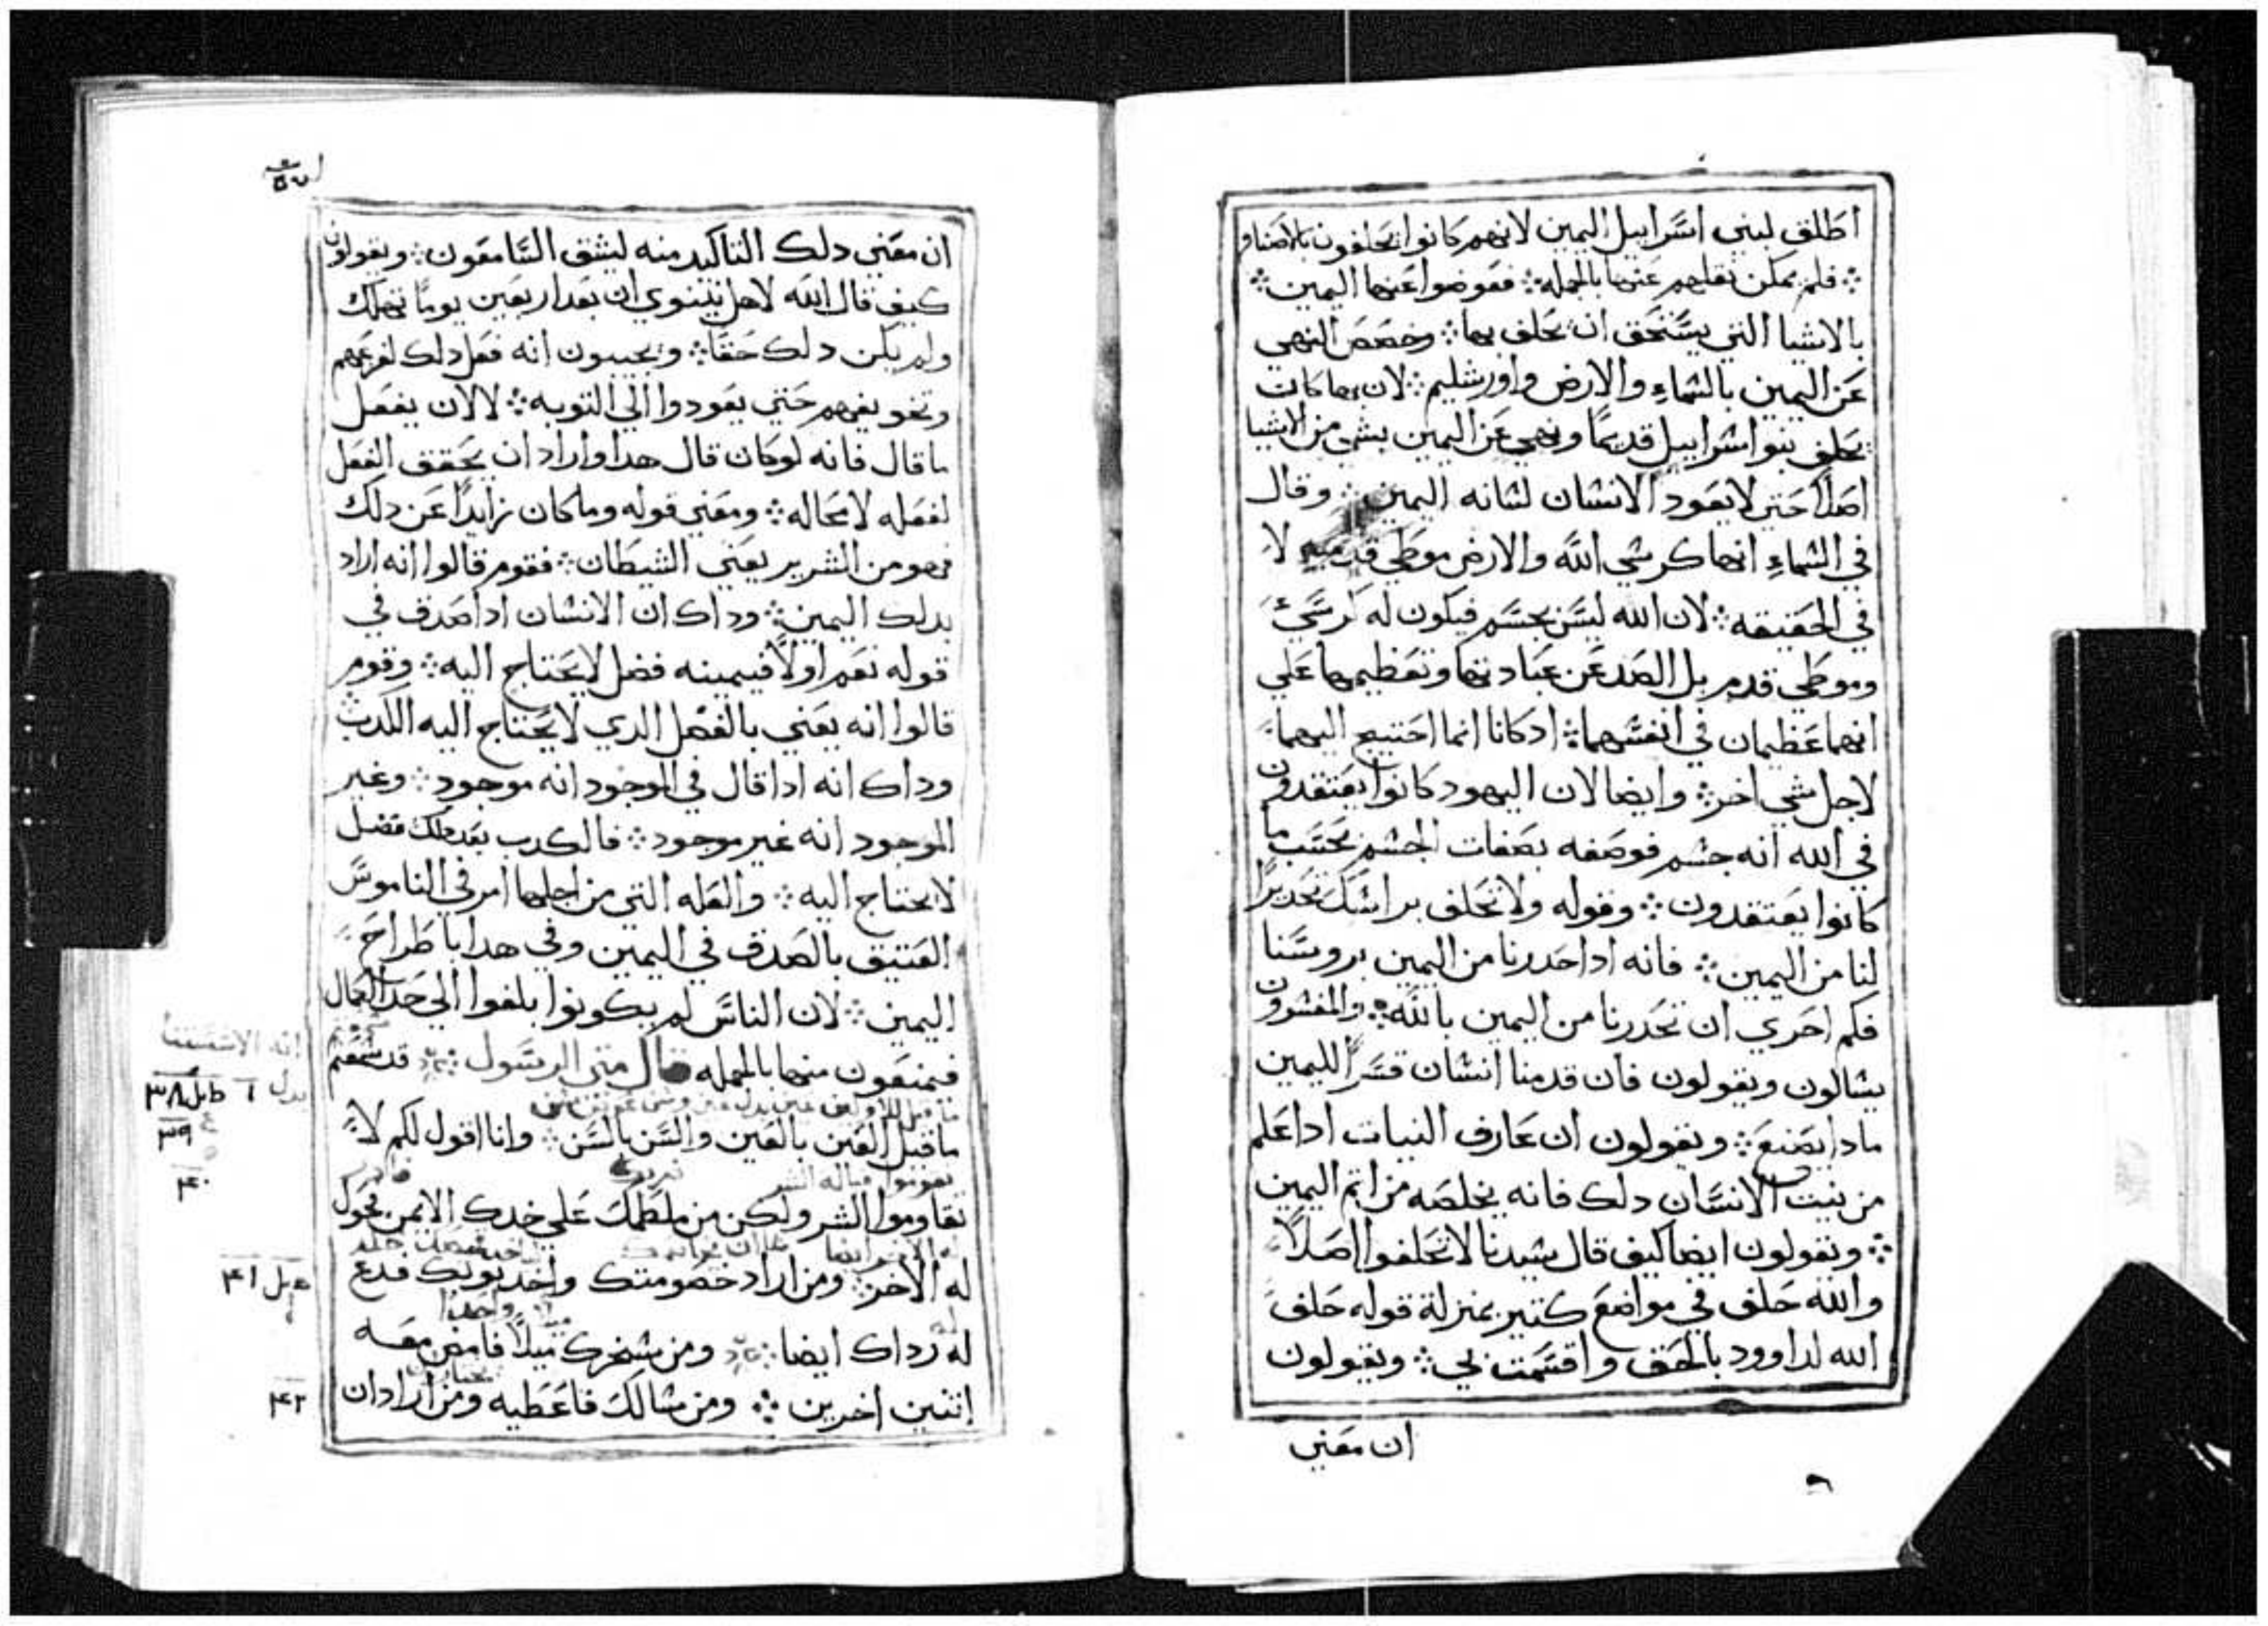 اطلق لبني اسراييل اليمين لانهم كانوا يحلفون بالاصنام
؞ فلم يمكن نقلهم عنها بالجمله ؞ فعوضوا عنها اليمين ؞
بالاشيا التي يستحق ان يحلف بها ؞ وخصص النهي
عن اليمين بالسماءِ والارض واورشليم ؞ لان بها كانت
يحلف بنوا اسراييل قديمًا ونهي عن اليمين بشي من الاشيا
اصلًا حتي لا يعود الانسان لسانه اليمين ؞ وقال
في السماءِ انها كرسي الله والارض موطي قدميه لا
في الحقيقه ؞ لان الله ليس بجسم فيكون له كرسيٌ
وموطي قدم بل الصد عن عبادتهما وتعظيمهما علي
انهما عظيمان في انفسهما ؞ اد كانا انما احتيج اليهما
لاجل شي اخر ؞ وايضا لان اليهود كانوا يعتقدون
في الله انه جسم فوصفه بصفات الجسم بحسب ما
كانوا يعتقدون ؞ وقوله ولا تحلف براسك تحديرًا
لنا من اليمين ؞ فانه ادا حدرنا من اليمين بروسنا
فكم احري ان تحدرنا من اليمين بالله ؞ والمفسرون
يسالون ويقولون فان قدمنا انسان قسرًا لليمين
مادا يصنع ؞ ويقولون ان عارف النيات ادا علم
من نيت الانسان دلك فانه يخلصه من اتم اليمين
؞ ويقولون ايضا كيف قال سيدنا لا تحلفوا اصلًا
والله حلف في مواضع كتير بمنزلة قوله حلف
الله لداوود بالحق واقسمت بي ؞ ويقولون
ان معني
ان معني دلك التاكيد منه ليثق السامعون ؞ ويقولون
كيف قال الله لاهل نينوي ان بعد اربعين يومًا تهلك
ولم يكن دلك حقًا ؞ ويجيبون انه فعل دلك لفزعهم
وتخويفهم حتي يعودوا الي التوبه ؞ لا لان يفعل
ما قال فانه لو كان قال هدا واراد ان يحقق الفعل
لفعله لا محاله ؞ ومعني قوله وما كان زايدًا عن دلك
فهو من الشرير يعني الشيطان ؞ فقوم قالوا انه اراد
بدلك اليمين ؞ وداك ان الانسان ادا صدق في
قوله نعم او لا فيمينه فضل لا يحتاج اليه ؞ وقوم
قالوا انه يعني بالفضل الدي لا يحتاج اليه الكدب
وداك انه ادا قال في الموجود انه موجود ؞ وغير
الموجود انه غير موجود ؞ فالكدب بعد دلك فضل
لا يحتاج اليه ؞ والعله التي من اجلها امر في الناموس
العتيق بالصدق في اليمين وفي هدا باطراح
اليمين ؞ لان الناس لم يكونوا بلغوا الي حد الكمال
فيمنعون منها بالجمله قال متي الرسول ؞ قد سمعتم
ما قيل العين بالعين والسن بالسن ؞ وانا اقول لكم لا
تقاوموا الشر ولكن من لطمك علي خدك الايمن فحول
له الاخر ؞ ومن اراد خصومتك واخد توبك فدع
له رداك ايضا ؞ ومن سخرك ميلًا فامض معه
اتنين اخرين ؞ ومن سالك فاعطيه ومن اراد ان
٣٨
٣٩
٤٠
٤١
٤٢